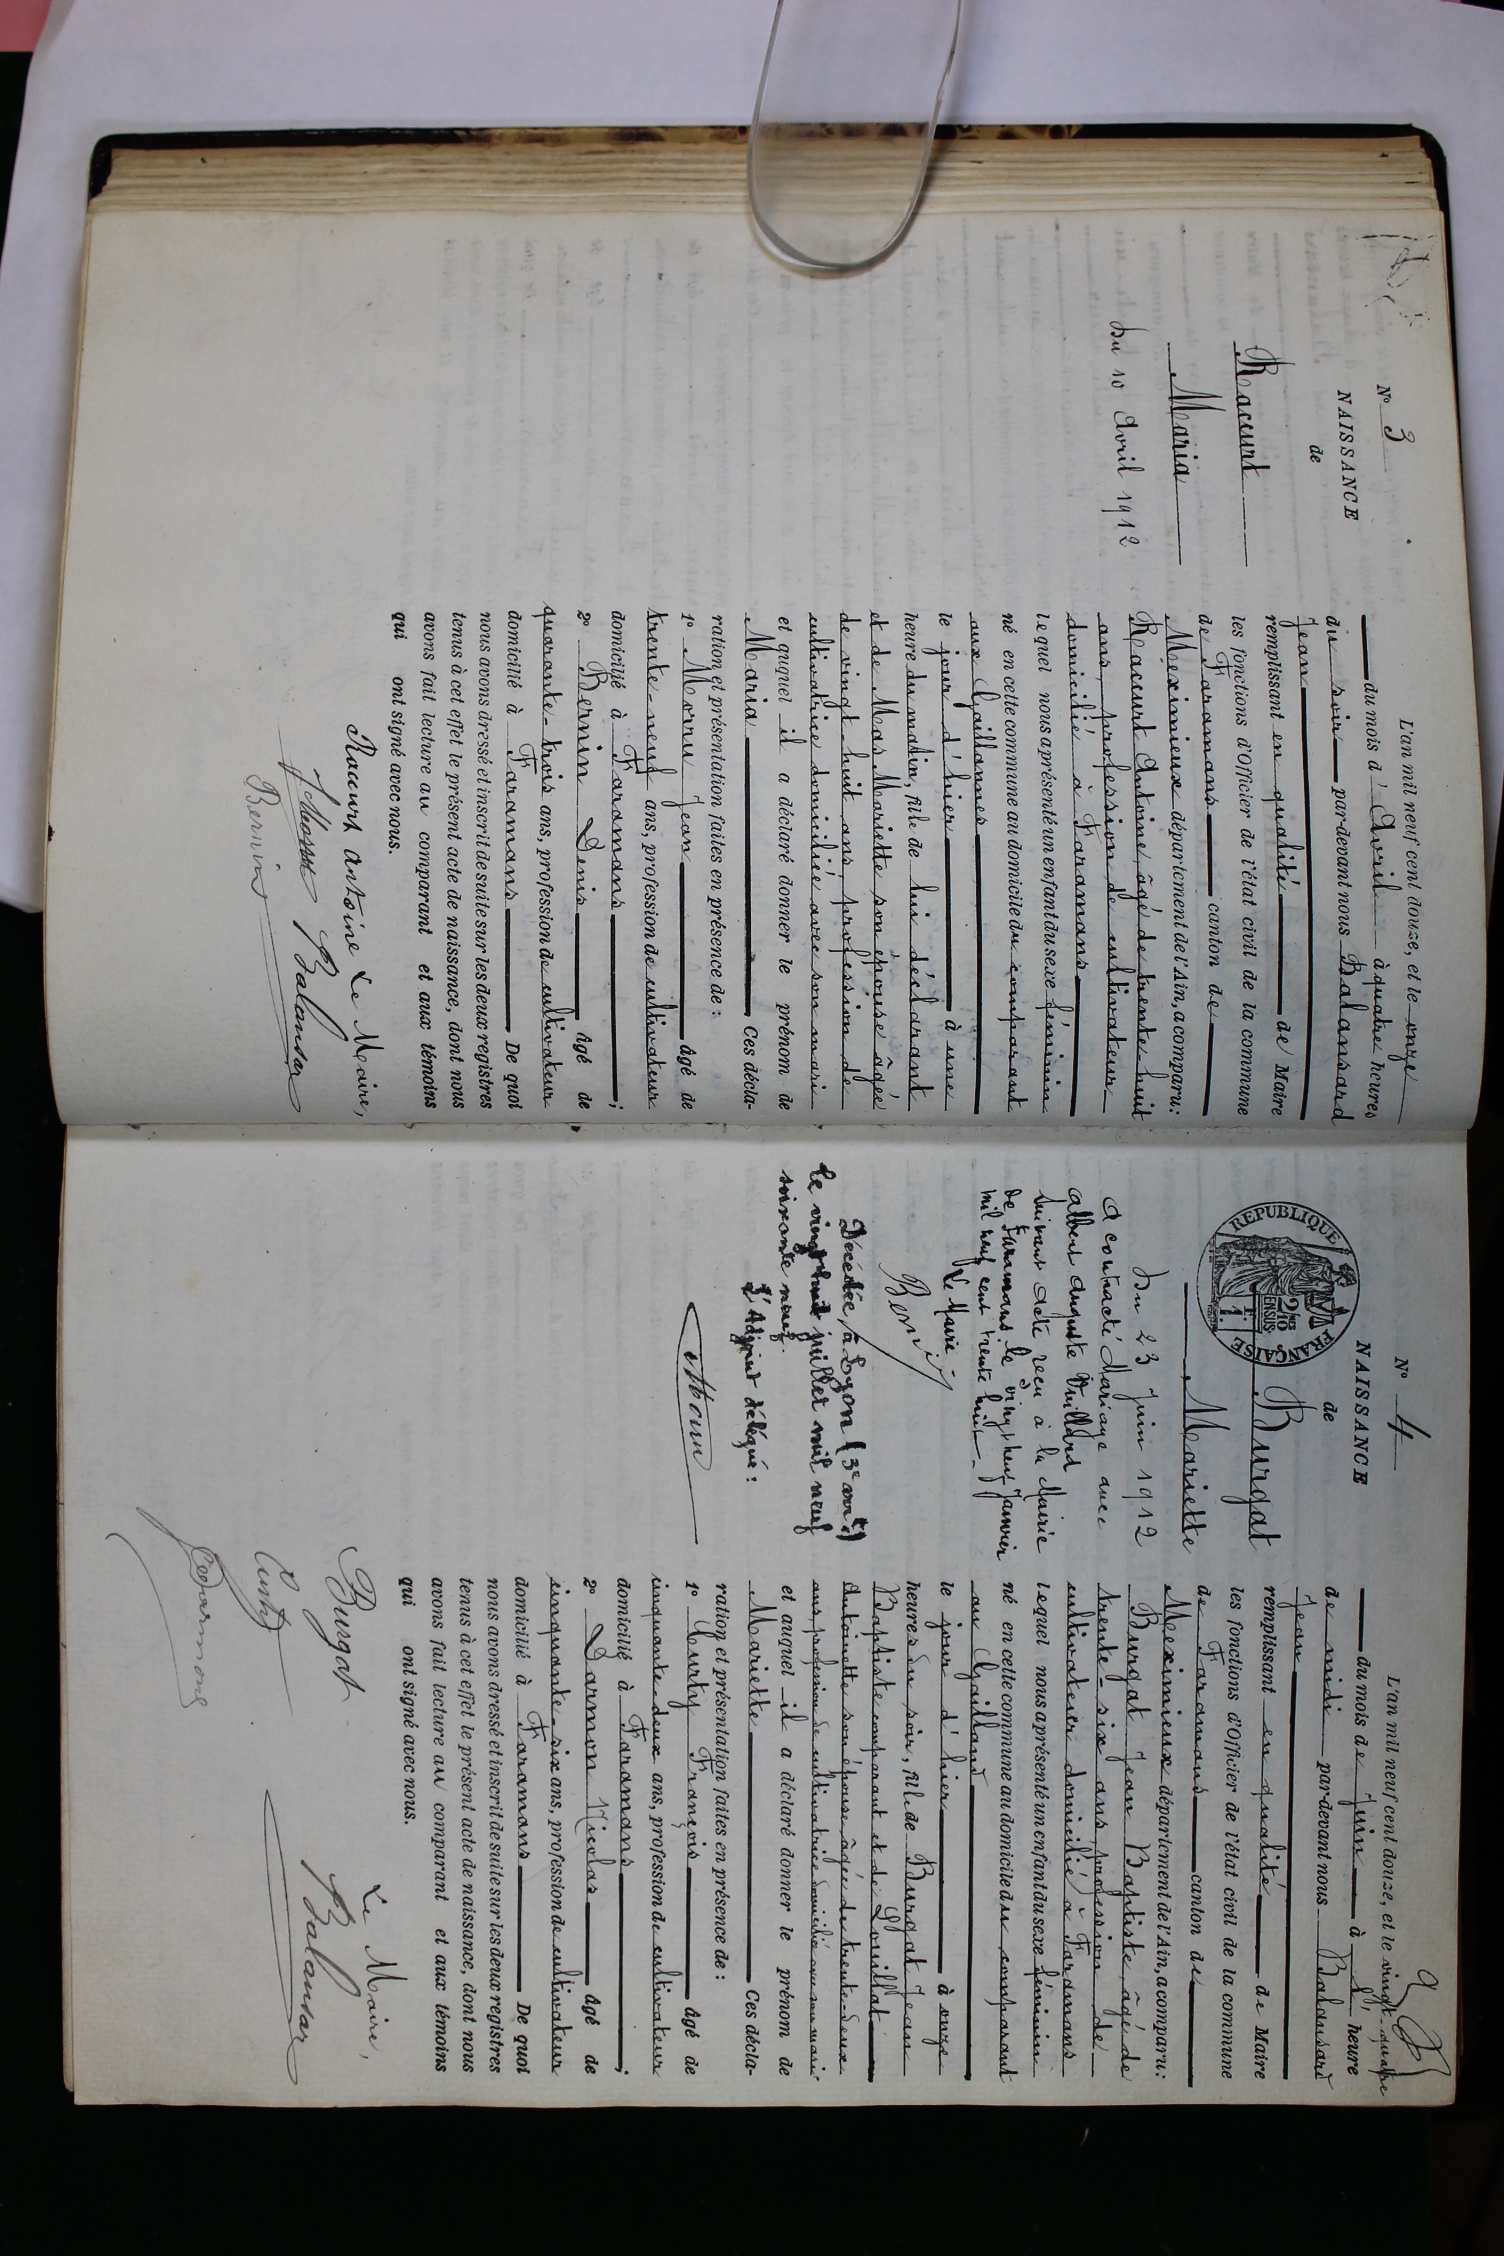 N° 3
NAISSANCE
de
Raccurt
Maria
Du 10 Avril 1912
L'an mil neuf cent douze, et le onze
du mois d'Avril à quatre heures
du soir par-devant nous Balansard
Jean
remplissant en qualité de Maire
les fonctions d'Officier de l'état civil de la commune
de Faramans canton de
Meximieux département de l'Ain, a comparu:
Raccurt Antoine, âgé de trente huit
ans, profession de cultivateur
domicilié à Faramans
lequel nous a présenté un enfant du sexe féminin
né en cette commune au domicile du comparant
aux Gaillannes
le jour d'hier à une
heure du matin, fille de lui déclarant
et de Mas Mariette son épouse âgée
de vingt huit ans, profession de
cultivatrice domiciliée avec son mari
et auquel il a déclaré donner le prénom de
Maria Ces décla-
ration et présentation faites en présence de :
1° Morru Jean Agé de
trente-neuf ans, profession de cultivateur
domicilié à Faramans ;
2° Bernin Denis Agé de
quarante-trois ans, profession de cultivateur
domicilié à Faramans De quoi
nous avons dressé et inscrit de suite sur les deux registres
tenus à cet effet le présent acte de naissance, dont nous
avons fait lecture au comparant et aux témoins
qui ont signé avec nous.
Raccurt antoine Le Maire,
Balansar
Bernin
N° 4
NAISSANCE
de
REPUBLIQUE FRANÇAISE
2/10mes
EN SUS
1 F.
Burgat
Mariette
Du 23 Juin 1912
A contracté Mariage avec
Albert Auguste Vuillard
suivant acte reçu à la Mairie
de Faramans le vingt neuf Janvier
mil neuf cent trente huit
Le Maire
Berni
Décédée à Lyon (3e arrt)
le vingt huit juillet mil neuf
soixante neuf.
L'Adjoint délégué :
L'an mil neuf cent douze, et le vingt-quatre
du mois de Juin à 1 heure
de midi par-devant nous Balansard
Jean
remplissant en qualité de Maire
les fonctions d'Officier de l'état civil de la commune
de Faramans canton de
Meximieux département de l'Ain, a comparu:
Burgat Jean Baptiste, âgé de
trente-six ans, profession de
cultivateur domicilié à Faramans
lequel nous a présenté un enfant du sexe féminin
né en cette commune au domicile du comparant
au Gailland
le jour d'hier à onze
heures du soir, fille de Burgat Jean
Baptiste comparant et de Louillat
Antoinette son épouse, âgée de trente-deux
ans, profession de cultivatrice domiciliée avec son mari
et auquel il a déclaré donner le prénom de
Mariette Ces décla-
ration et présentation faites en présence de :
1° Curty François Agé de
cinquante-deux ans, profession de cultivateur
domicilié à Faramans ;
2° Darmon Nicolas Agé de
cinquante-six ans, profession de cultivateur
domicilié à Faramans De quoi
nous avons dressé et inscrit de suite sur les deux registres
tenus à cet effet le présent acte de naissance, dont nous
avons fait lecture au comparant et aux témoins
qui ont signé avec nous.
Burgat Le Maire,
Curty Balansar